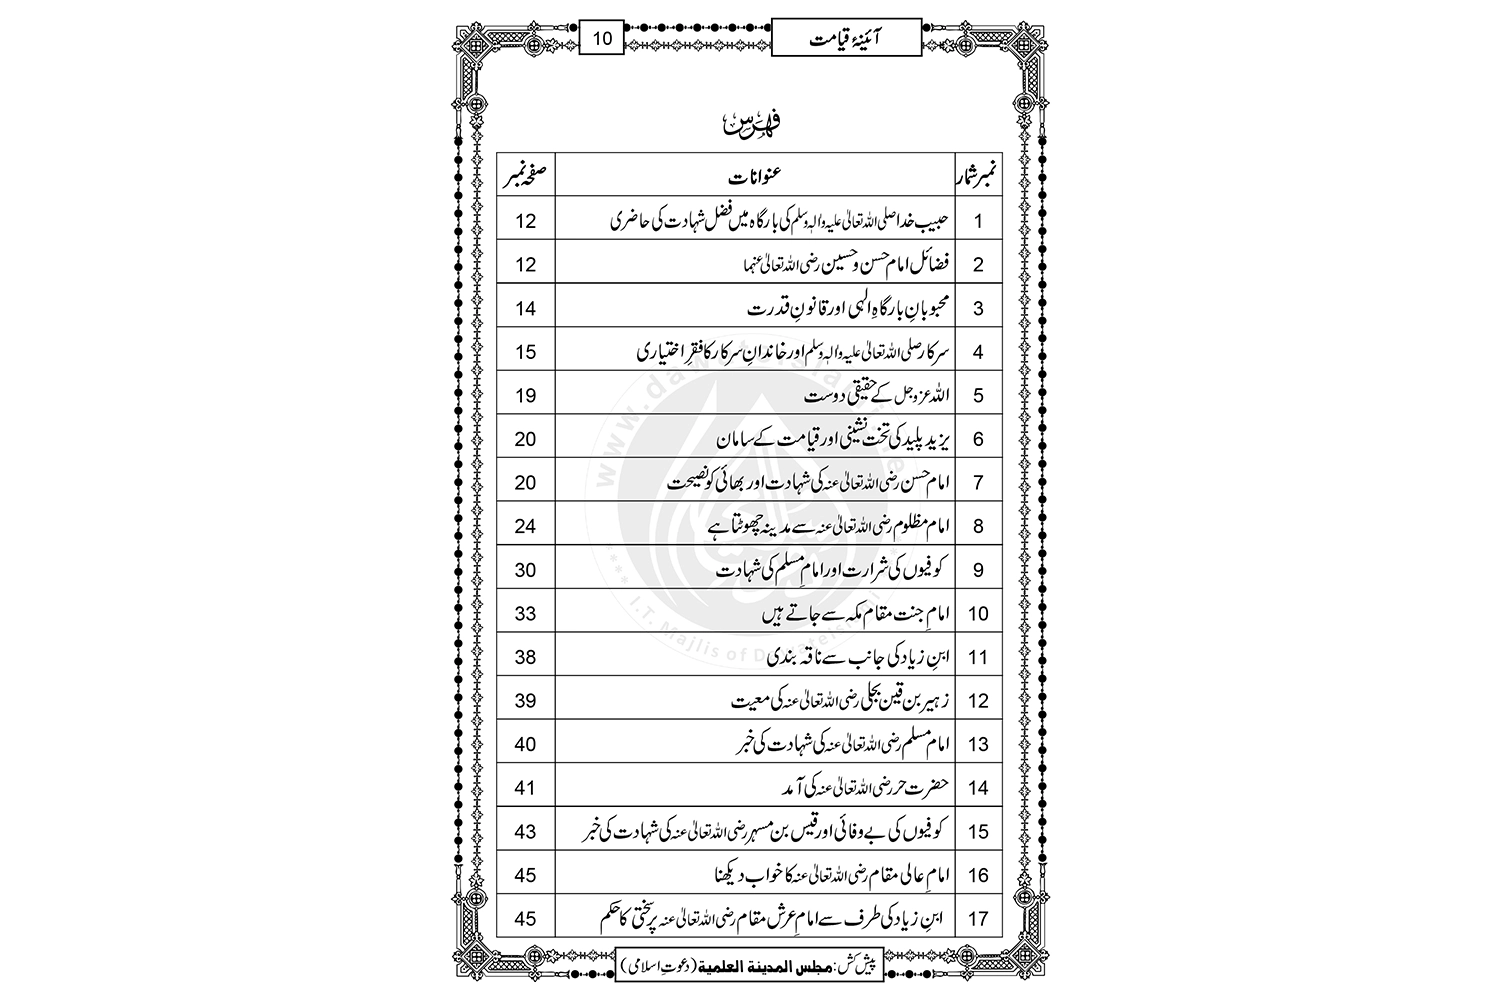 آئینۂ قیامت
10
فہرس
نمبر شمار عنوانات صفحہ نمبر
1 حبیب خدا صلی اللہ تعالیٰ علیہ والہٖ وسلم کی بارگاہ میں فضل شہادت کی حاضری 12
2 فضائل امام حسن و حسین رضی اللہ تعالیٰ عنہما 12
3 محبوبانِ بارگاہِ الٰہی اور قانونِ قدرت 14
4 سرکار صلی اللہ تعالیٰ علیہ والہٖ وسلم اور خاندانِ سرکار کا فقرِ اختیاری 15
5 اللہ عزوجل کے حقیقی دوست 19
6 یزید پلید کی تخت نشینی اور قیامت کے سامان 20
7 امام حسن رضی اللہ تعالیٰ عنہ کی شہادت اور بھائی کو نصیحت 20
8 امام مظلوم رضی اللہ تعالیٰ عنہ سے مدینہ چھوٹتا ہے 24
9 کوفیوں کی شرارت اور امامِ مسلم کی شہادت 30
10 امامِ جنت مقام مکہ سے جاتے ہیں 33
11 ابنِ زیاد کی جانب سے ناقہ بندی 38
12 زہیر بن قین بجلی رضی اللہ تعالیٰ عنہ کی معیت 39
13 امام مسلم رضی اللہ تعالیٰ عنہ کی شہادت کی خبر 40
14 حضرت حر رضی اللہ تعالیٰ عنہ کی آمد 41
15 کوفیوں کی بے وفائی اور قیس بن مسہر رضی اللہ تعالیٰ عنہ کی شہادت کی خبر 43
16 امامِ عالی مقام رضی اللہ تعالیٰ عنہ کا خواب دیکھنا 45
17 ابنِ زیاد کی طرف سے امامِ عرش مقام رضی اللہ تعالیٰ عنہ پر سختی کا حکم 45
پیش کش: مجلس المدینۃ العلمیۃ (دعوتِ اسلامی)